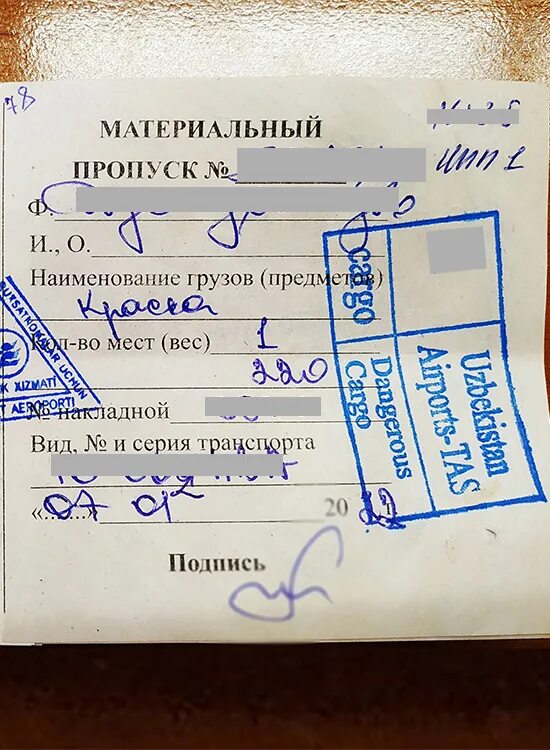 78
МАТЕРИАЛЬНЫЙ
ПРОПУСК №
Ф.
И., О.
Наименование грузов (предметов)
Краска
Кол-во мест (вес) 1
220
№ накладной
Вид, № и серия транспорта
«07» 20 22
Подпись
cargo
Dangerous
Cargo
Uzbekistan
Airports-TAS
RUXSATNOMALAR UCHUN
K XIZMATI
T AEROPORTI